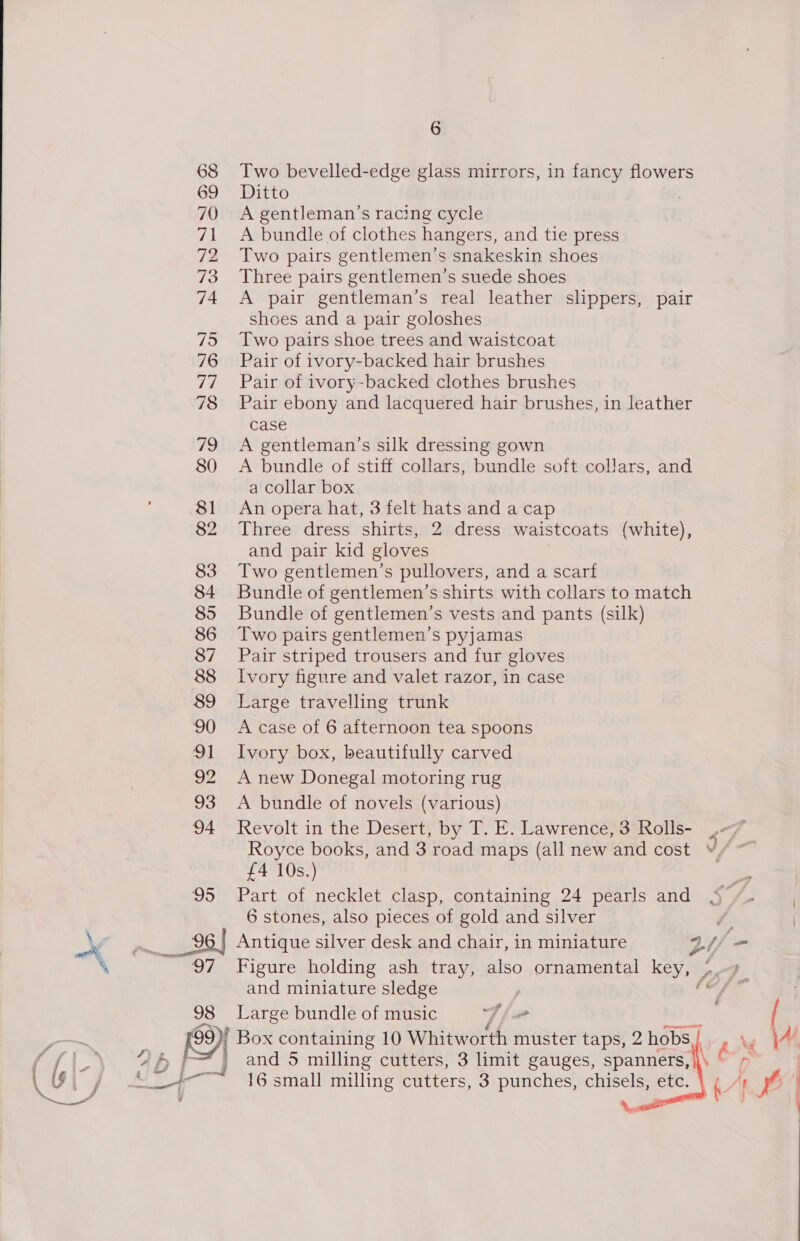 6
68 Two bevelled-edge glass mirrors, in fancy flowers
69 Ditto
70 A gentleman's racing cycle
71 A bundle of clothes hangers, and tie press
72 Two pairs gentlemen's snakeskin shoes
73 Three pairs gentlemen's suede shoes
74 A pair gentleman's real leather slippers, pair
shoes and a pair goloshes
75 Two pairs shoe trees and waistcoat
76 Pair of ivory-backed hair brushes
77 Pair of ivory-backed clothes brushes
78 Pair ebony and lacquered hair brushes, in leather
case
79 A gentleman's silk dressing gown
80 A bundle of stiff collars, bundle soft collars, and
a collar box
81 An opera hat, 3 felt hats and a cap
82 Three dress shirts, 2 dress waistcoats (white),
and pair kid gloves
83 Two gentlemen's pullovers, and a scarf
84 Bundle of gentlemen's shirts with collars to match
85 Bundle of gentlemen's vests and pants (silk)
86 Two pairs gentlemen's pyjamas
87 Pair striped trousers and fur gloves
88 Ivory figure and valet razor, in case
89 Large travelling trunk
90 A case of 6 afternoon tea spoons
91 Ivory box, beautifully carved
92 A new Donegal motoring rug
93 A bundle of novels (various)
94 Revolt in the Desert, by T. E. Lawrence, 3 Rolls-
Royce books, and 3 road maps (all new and cost
£4 10s.)
95 Part of necklet clasp, containing 24 pearls and
6 stones, also pieces of gold and silver
96 Antique silver desk and chair, in miniature
97 Figure holding ash tray, also ornamental key,
and miniature sledge
98 Large bundle of music
99 Box containing 10 Whitworth muster taps, 2 hobs,
and 5 milling cutters, 3 limit gauges, spanners,
16 small milling cutters, 3 punches, chisels, etc.